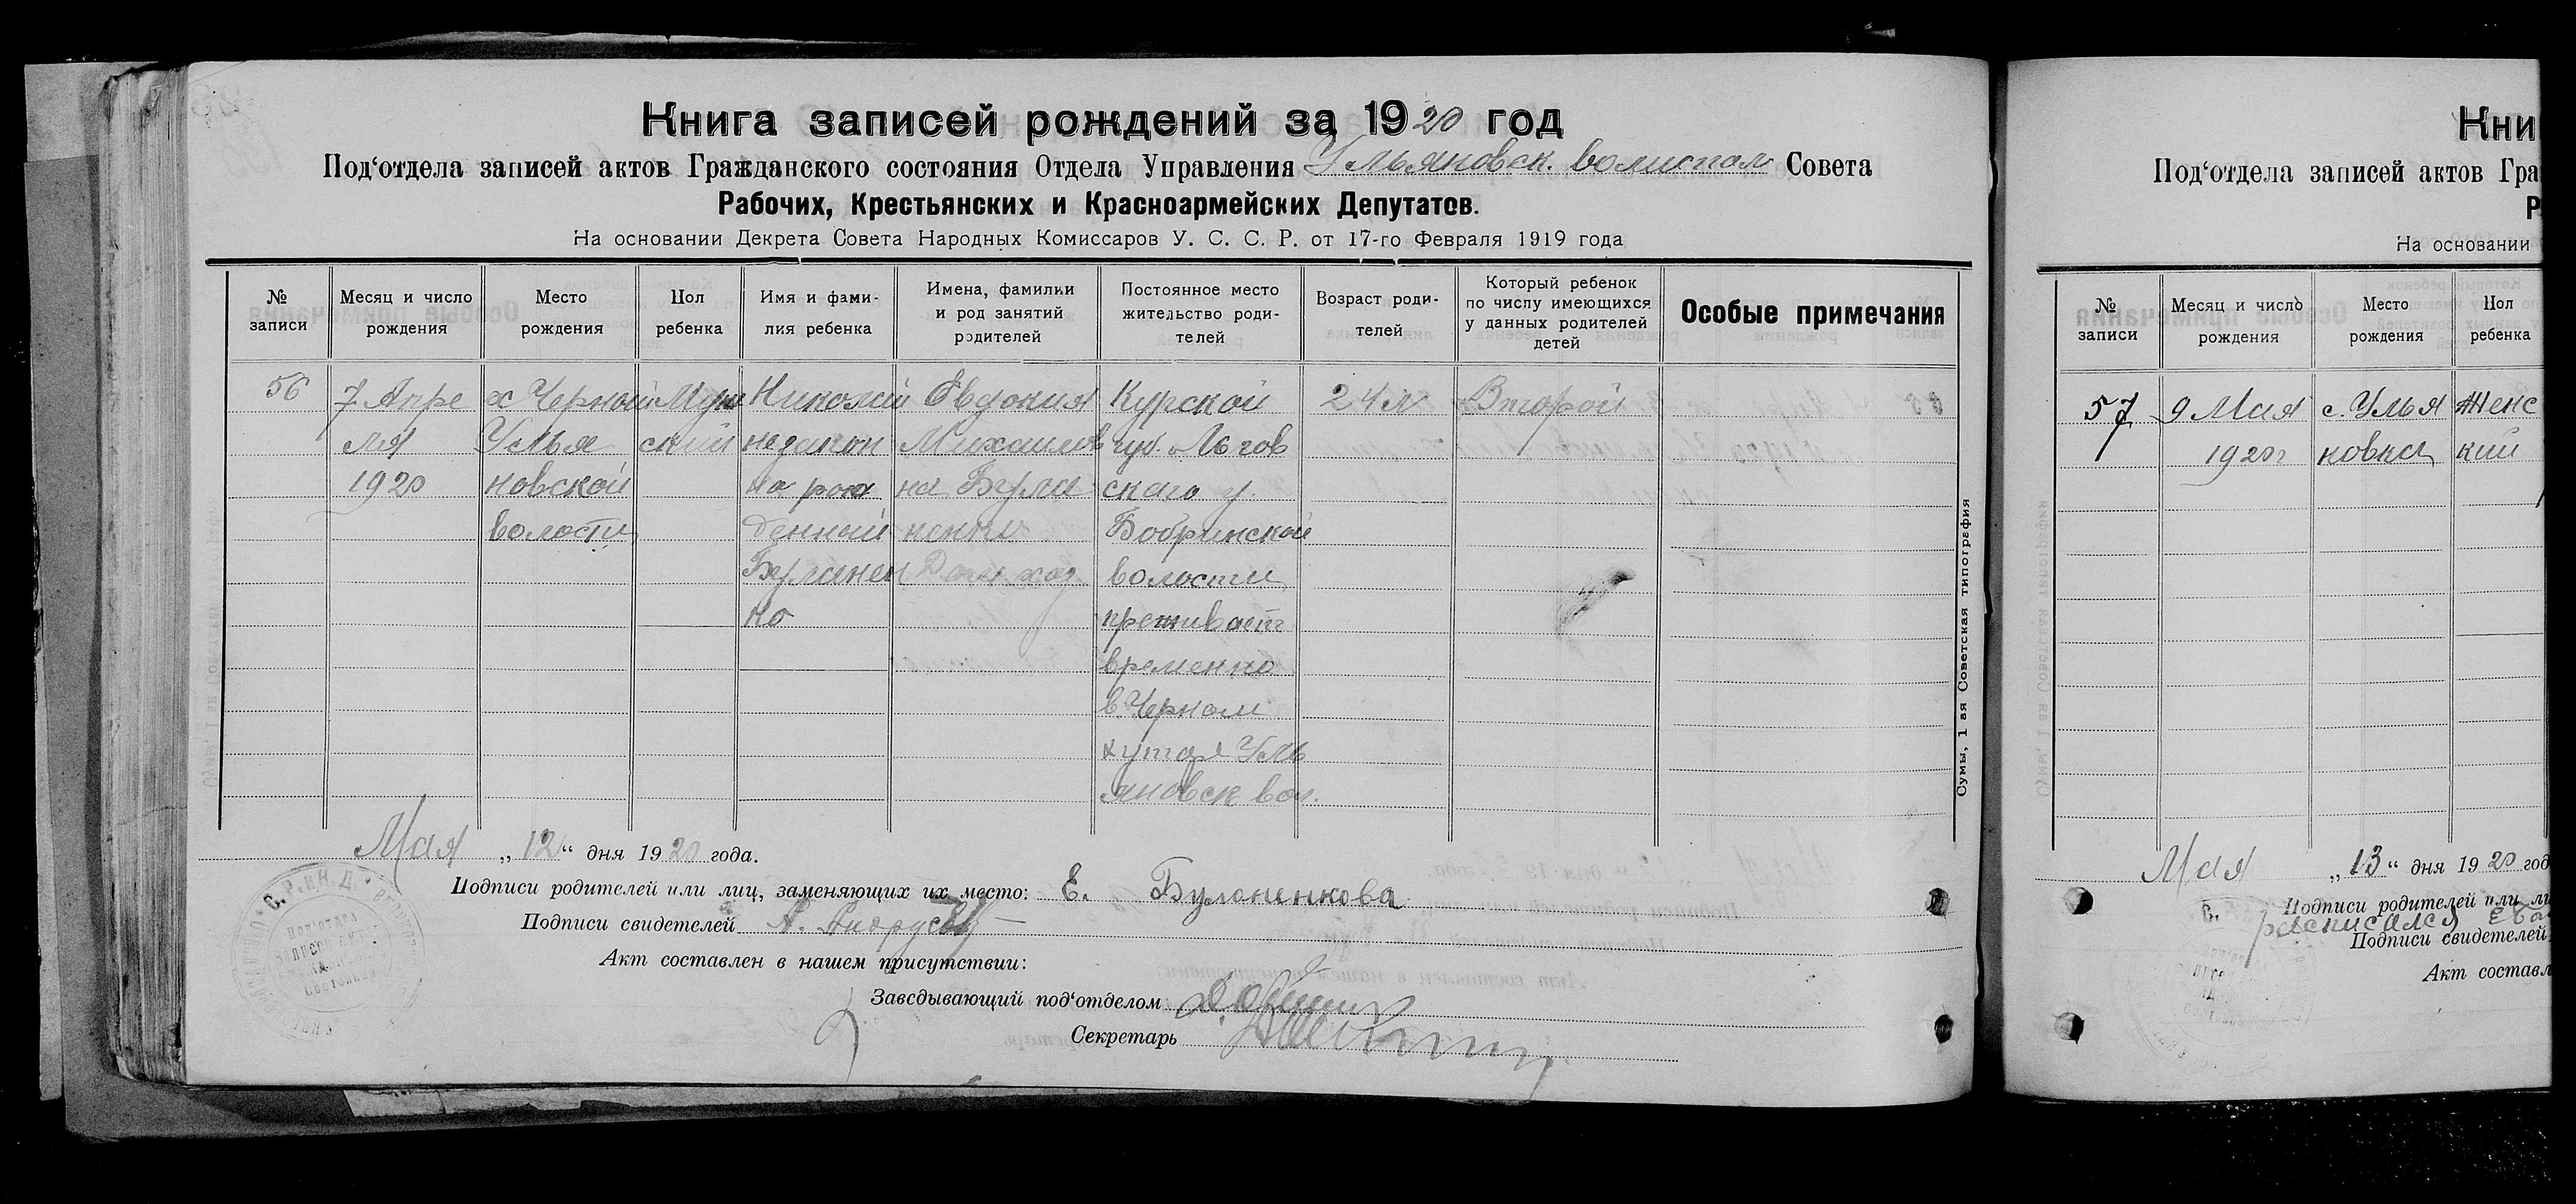 Книга записей рождений за 1920 год
Под‘отдела записей актов Гражданского состояния Отдела Управления Ульяновск. Совета
Рабочих, Крестьянских и Красноармейских Депутатов.
На основании Декрета Совета Народных Комиссаров У. С. С. Р. от 17-го Февраля 1919 года
№
записи
Месяц и число
рождения
Место
рождения
Пол
ребенка
Имя и фами-
лия ребенка
Имена, фамилии
и род занятий
родителей
Постоянное место
жительство роди-
телей
Возраст роди-
телей
Который ребенок
по числу имеющихся
у данных родителей
детей
Особые примечания
56
7 Апре
ля
1920
х Черной
Улья
новской
волости
Муж
ский
Николай
незакон
но рож
денный
Буланен
ко
Евдокия
Михайлов
на Була
Дом. хоз.
Курской
губ. Льгов
скаго у.
Бобринской
волости
временно
в Черном
хуторе Уль
яновск вол.
24 л
Второй
Сумы, 1 ая Советская типография
Мая „12“ дня 1920 года.
Подписи родителей или лиц, заменяющих их место: Е. Булоненкова
Подписи свидетелей
Акт составлен в нашем присутствии:
Заведывающий под‘отделом
Секретарь
Кни
Под‘отдела записей актов Гра
Р
На основании
№
записи
Месяц и число
рождения
Место
рождения
Пол
ребенка
57
9 Мая
1920г
с. Улья
новка
Женс
кий
Мая „13“ дня 1920 год
Подписи родителей или ли
расписался
Подписи свидетелей
Акт составл